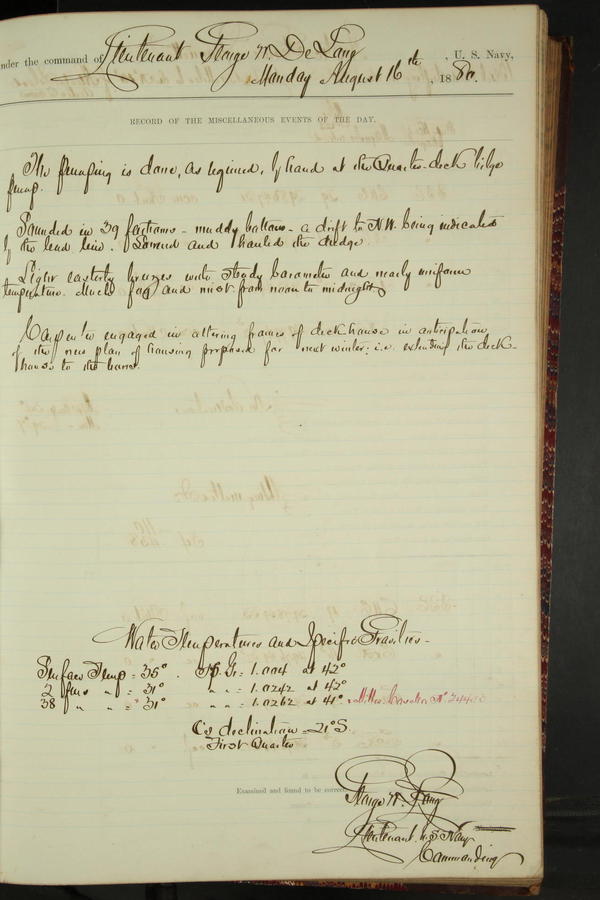 nder the command of Lieutenant George W. De Long , U. S. Navy,
Monday August 16th , 1880.
RECORD OF THE MISCELLANEOUS EVENTS OF THE DAY.
The pumping is done, as required, by hand at the Quarter-deck bilge
pump.
Sounded in 39 fathoms - muddy bottom - a drift to N.W. being indicated
by the lead line. Lowered and hauled the dredge
Light easterly breezes with steady barometer and nearly uniform
temperature. Much fog and mist from noon to midnight
Carpenter engaged in altering frame of deck house in anticipation
of the new plan of housing proposed for next winter: i.e. extending the deck-
house to the
Water Temperatures and Specific Gravities -
Surface Temp = 35° . Sp. Gr = 1.004 at 42°
2 fms " = 31° " " = 1.0242 at 43°
38 " " = 31° " " = 1.0262 at 41°
C's declination = 21° S.
First Quarter
Examined and found to be correct.
George W. De Long
Lieutenant U.S. Navy
Commanding